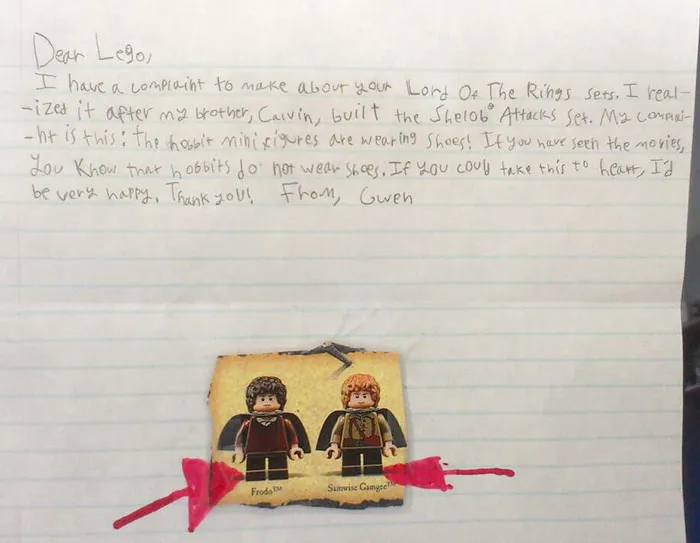 Dear Lego,
I have a complaint to make about your Lord Of The Rings sets. I real-
-ized it after my brother, Calvin, built the Shelob® Attacks set. My complai-
-nt is this: the hobbit minifigures are wearing shoes! If you have seen the movies,
you know that hobbits do not wear shoes. If you coub take this to heart, I'd
be very happy. Thank you! From, Gwen
Frodo™ Samwise Gamgee™